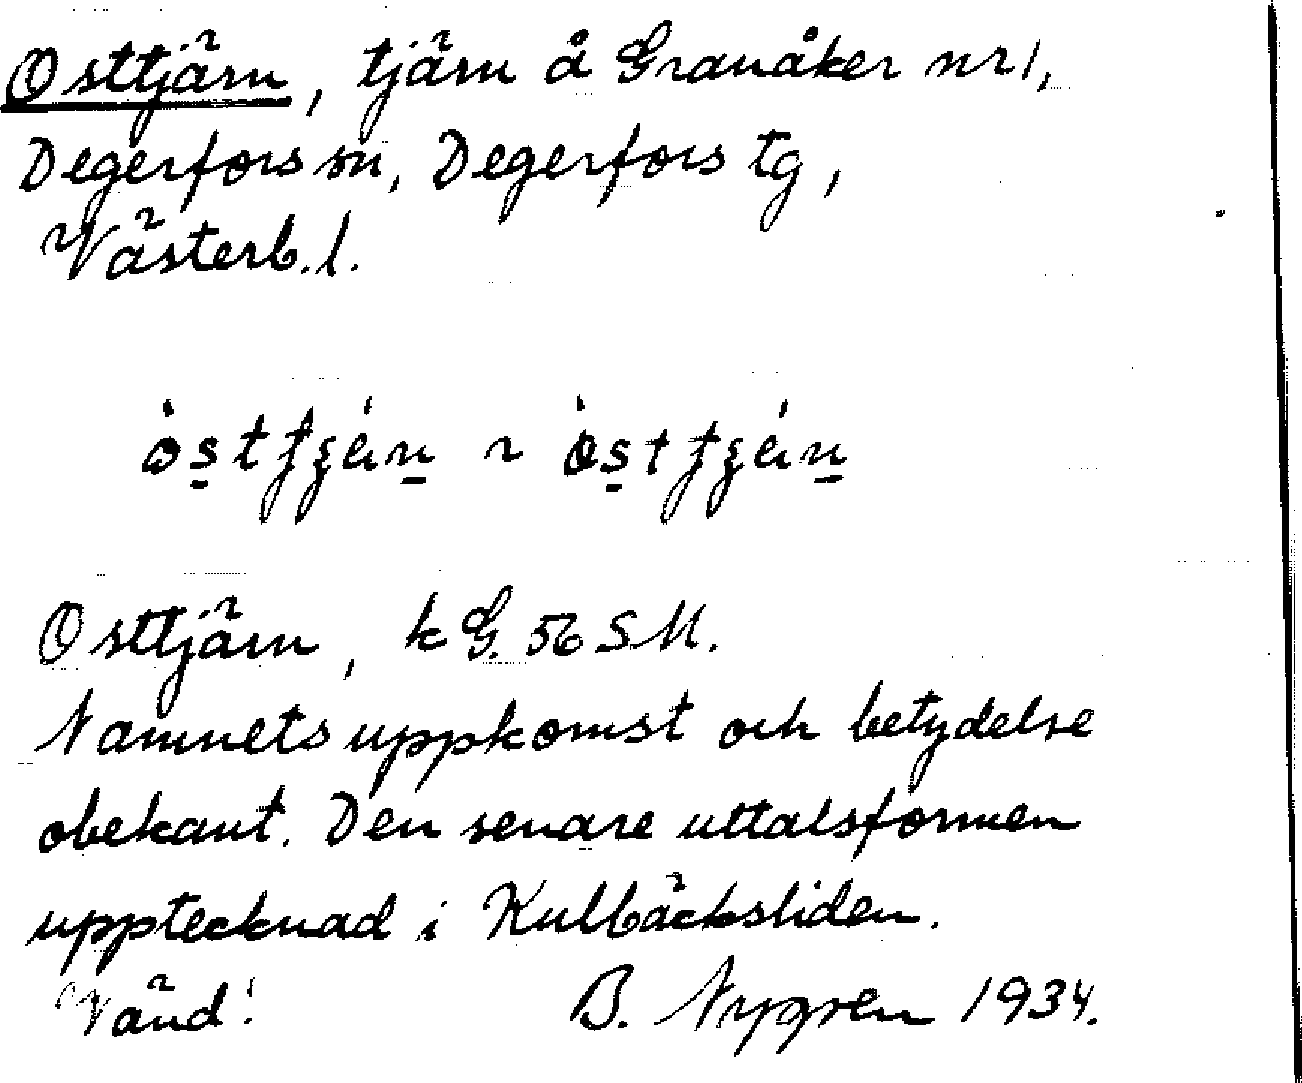 Osttjärn, tjärn å Granåker nr 1,
Degerfors sn, Degerfors tg,
Västerb. l.
Osttjärn, k G. 56 SM.
Namnets uppkomst och betydelse
obekant. Den senare uttalsformen
upptecknad i Kulbäcksliden.
Vänd! B. Nygren 1934.